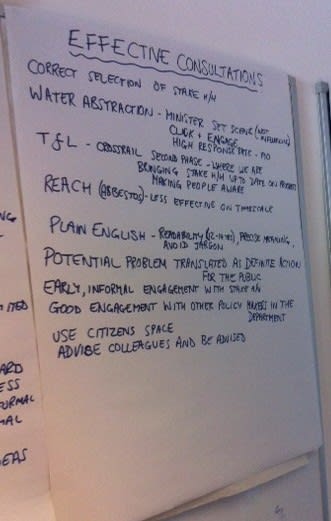 EFFECTIVE CONSULTATIONS
CORRECT SELECTION OF STAKE H/H
WATER ABSTRACTION - MINISTER SET SCENE (NOT INFLUENCING)
CLICK & ENGAGE
HIGH RESPONSE RATE -
T&L - CROSSRAIL SECOND PHASE - WHERE WE ARE
BRINGING STAKE H/H UP TO DATE ON
MAKING PEOPLE AWARE
REACH (ASBESTOS) - LESS EFFECTIVE ON TIMESCALE
PLAIN ENGLISH - READABILITY, PRECISE MEANING,
AVOID JARGON
POTENTIAL PROBLEM TRANSLATED AS DEFINITE ACTION
FOR THE PUBLIC
EARLY, INFORMAL ENGAGEMENT WITH STAKE H/H
GOOD ENGAGEMENT WITH OTHER POLICY MAKERS IN THE
DEPARTMENT
USE CITIZENS SPACE
ADVISE COLLEAGUES AND BE ADVISED